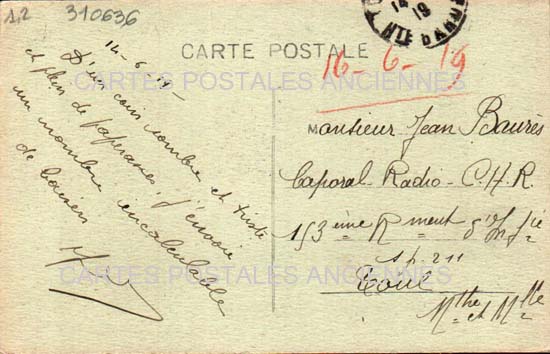 1,2 310636
14 19
HTE GARONNE
CARTE POSTALE
16-6-19
14-6-19-
D'un coin sombre et triste
et plein de paperasses, j'envoie
un nombre incalculable
de baisers
CARTES POSTALES ANCIENNES
Monsieur Jean Baurès
Caporal-Radio-C.H.R.
153ème R ment d'Inf ie
S.P. 211
Toul
CARTES POSTALES ANCIENNES
M the et M lle